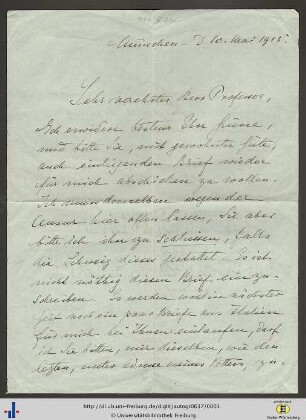 München – D. 10. Mai 1915.
Sehr verehrter Herr Professor,
Ich erwidere bestens Ihre Grüsse,
und bitte Sie, mit gewohnter Güte,
auch einliegenden Brief wieder
für mich abschicken zu wollen.
Ich muss denselben wegen der
Censur hier offen lassen, Sie aber
bitte ich ihn zu schliessen, falls
die Schweiz dieses gestattet. Es ist
nicht nöthig diesen Brief einzu-
schreiben. Es werden wohl in nächster
Zeit noch ein paar Briefe aus Italien
für mich bei Ihnen einlaufen, darf
ich Sie bitten, mir dieselben, wie den
letzten, unter Adresse meines Vetters, zu-
http://dl.ub.uni-freiburg.de/diglit/autogr0637/0001
© Universitätsbibliothek Freiburg